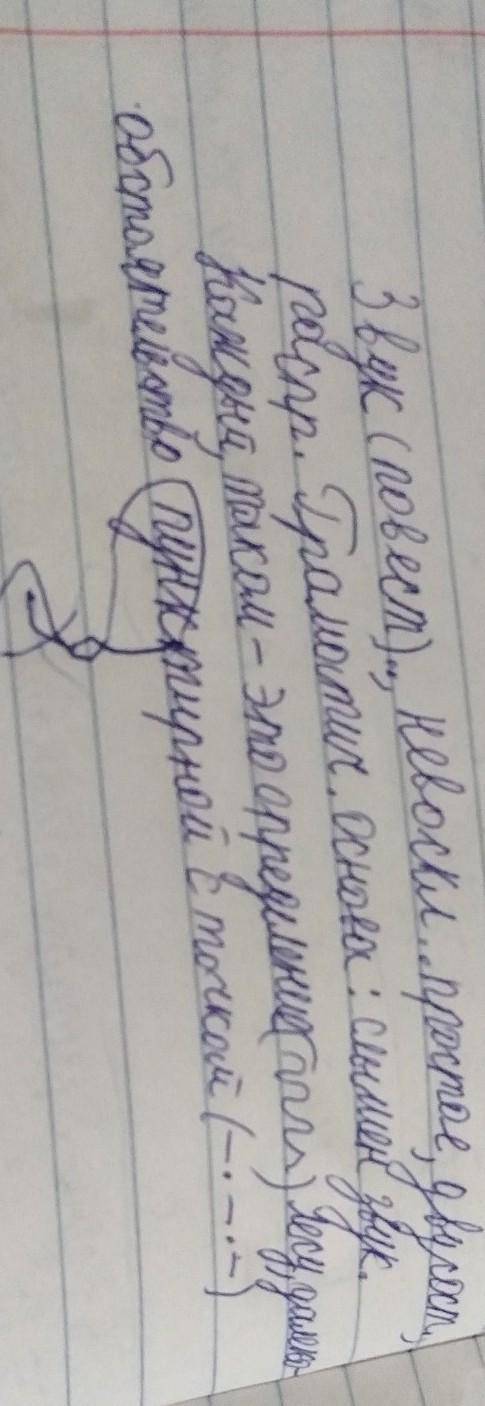 Звук (повест)., невоскл., простое, двусост,
распр. Грамотич. основа: слышен звук.
Каждона, таком - это определение ( ) Лесу, далеко-
обстоятельство (пунктирной с точкой (-.-.-)